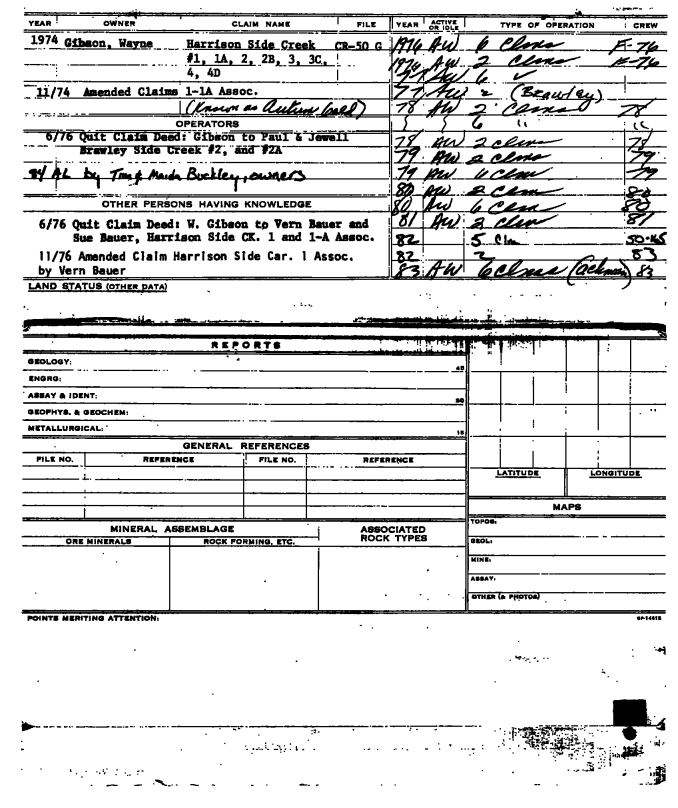 YEAR OWNER CLAIM NAME FILE YEAR ACTIVE OR IDLE TYPE OF OPERATION CREW
1974 Gibson, Wayne Harrison Side Creek CR-50 G 1976 AW 6 Clms F-76
#1, 1A, 2, 2B, 3, 3C, 1976 AW 2 Clms F-76
4, 4D 77 AW 6 ✓
11/74 Amended Claims 1-1A Assoc. 77 AW 2 (Brawley)
(Known as Autumn Gold) 78 AW 2 Clms 78
OPERATORS 6 " "
6/76 Quit Claim Deed: Gibson to Paul & Jewell 78 AW 2 clms 78
Brawley Side Creek #2, and #2A 79 AW 2 clms 79
84 AL by Buckley, owners 79 AW 6 clms 79
80 AW 2 Clms 80
OTHER PERSONS HAVING KNOWLEDGE 80 AW 6 Clms 80
6/76 Quit Claim Deed: W. Gibson to Vern Bauer and 81 AW 2 Clms 81
Sue Bauer, Harrison Side CK. 1 and 1-A Assoc. 82 5 Clm 50-165
11/76 Amended Claim Harrison Side Car. 1 Assoc. 82 2 83
by Vern Bauer 83 AW 6 clms 83
LAND STATUS (OTHER DATA)
REPORTS
GEOLOGY:
ENGRG:
ASSAY & IDENT:
GEOPHYS. & GEOCHEM:
METALLURGICAL:
GENERAL REFERENCES
FILE NO. REFERENCE FILE NO. REFERENCE
LATITUDE LONGITUDE
MAPS
MINERAL ASSEMBLAGE ASSOCIATED ROCK TYPES
ORE MINERALS ROCK FORMING, ETC.
TOPOG:
GEOL:
MINE:
ASSAY:
OTHER (& PHOTOS)
POINTS MERITING ATTENTION: